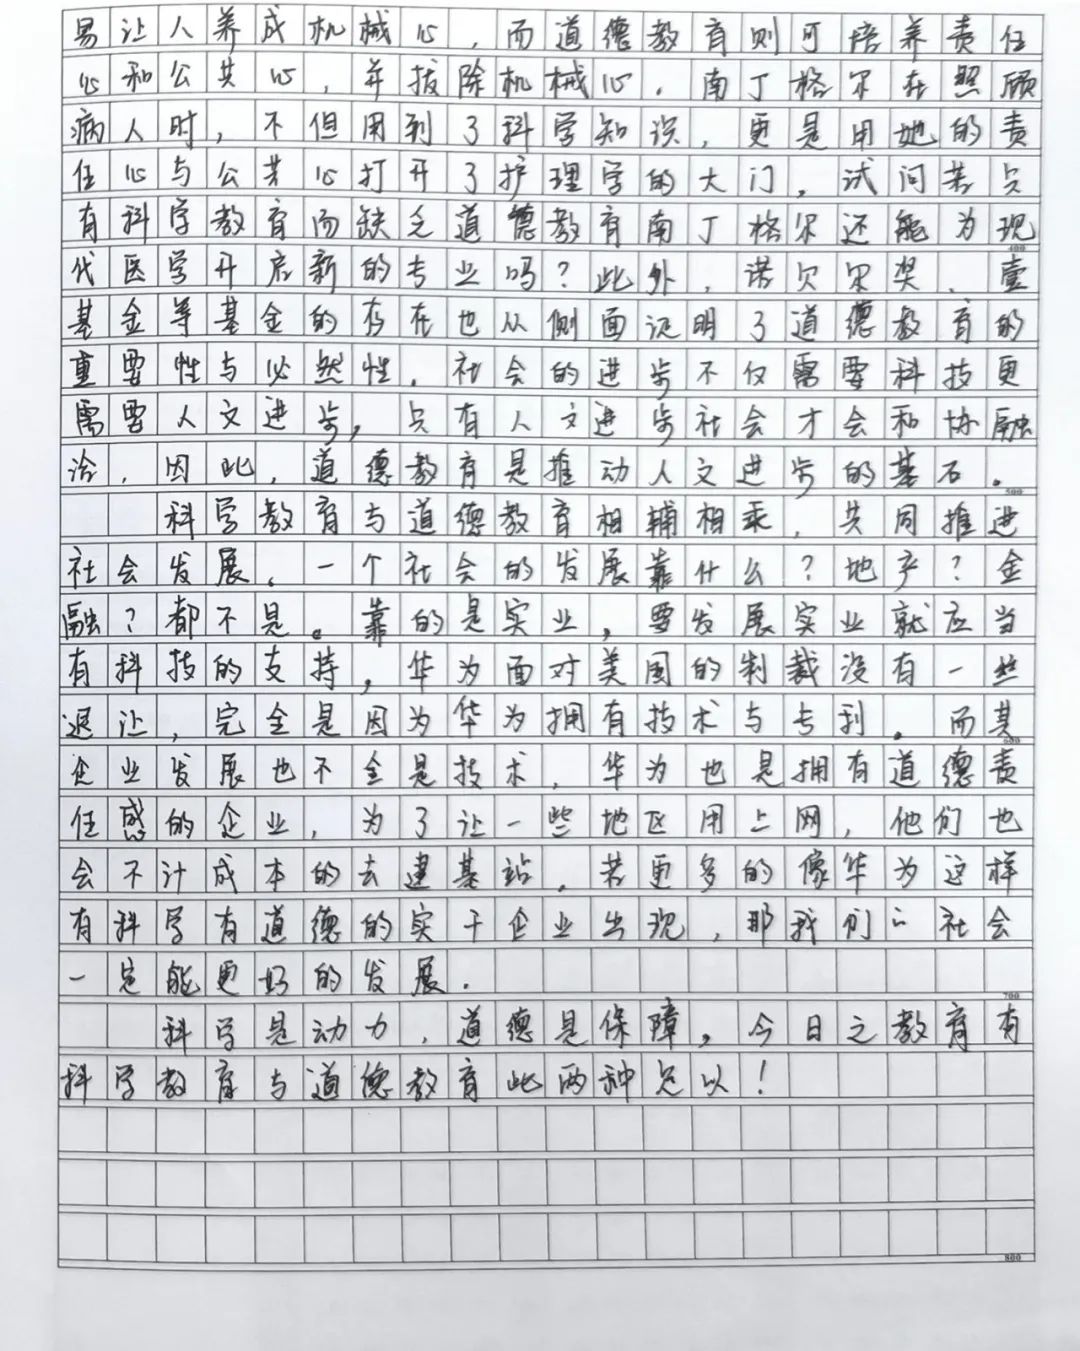 易让人养成机械心，而道德教育则可培养责任
心和公共心，并拔除机械心．南丁格尔在照顾
病人时，不但用到了科学知识，更是用她的责
任心与公共心打开了护理学的大门，试问若只
有科学教育而缺乏道德教育南丁格尔还能为现
400
代医学开启新的专业吗？此外，诺贝尔奖、壹
基金等基金的存在也从侧面证明了道德教育的
重要性与必然性．社会的进步不仅需要科技更
需要人文进步，只有人文进步社会才会和协融
洽．因此，道德教育是推动人文进步的基石．
500
科学教育与道德教育相辅相乘，共同推进
社会发展．一个社会的发展靠什么？地产？金
融？都不是。靠的是实业，要发展实业就应当
有科技的支持，华为面对美国的制裁没有一些
退让，完全是因为华为拥有技术与专利．而其
600
企业发展也不全是技术，华为也是拥有道德责
任感的企业，为了让一些地区用上网，他们也
会不计成本的去建基站．若更多的像华为这样
有科学有道德的实干企业出现，那我们的社会
一定能更好的发展．
700
科学是动力，道德是保障，今日之教育有
科学教育与道德教育此两种足以！
800